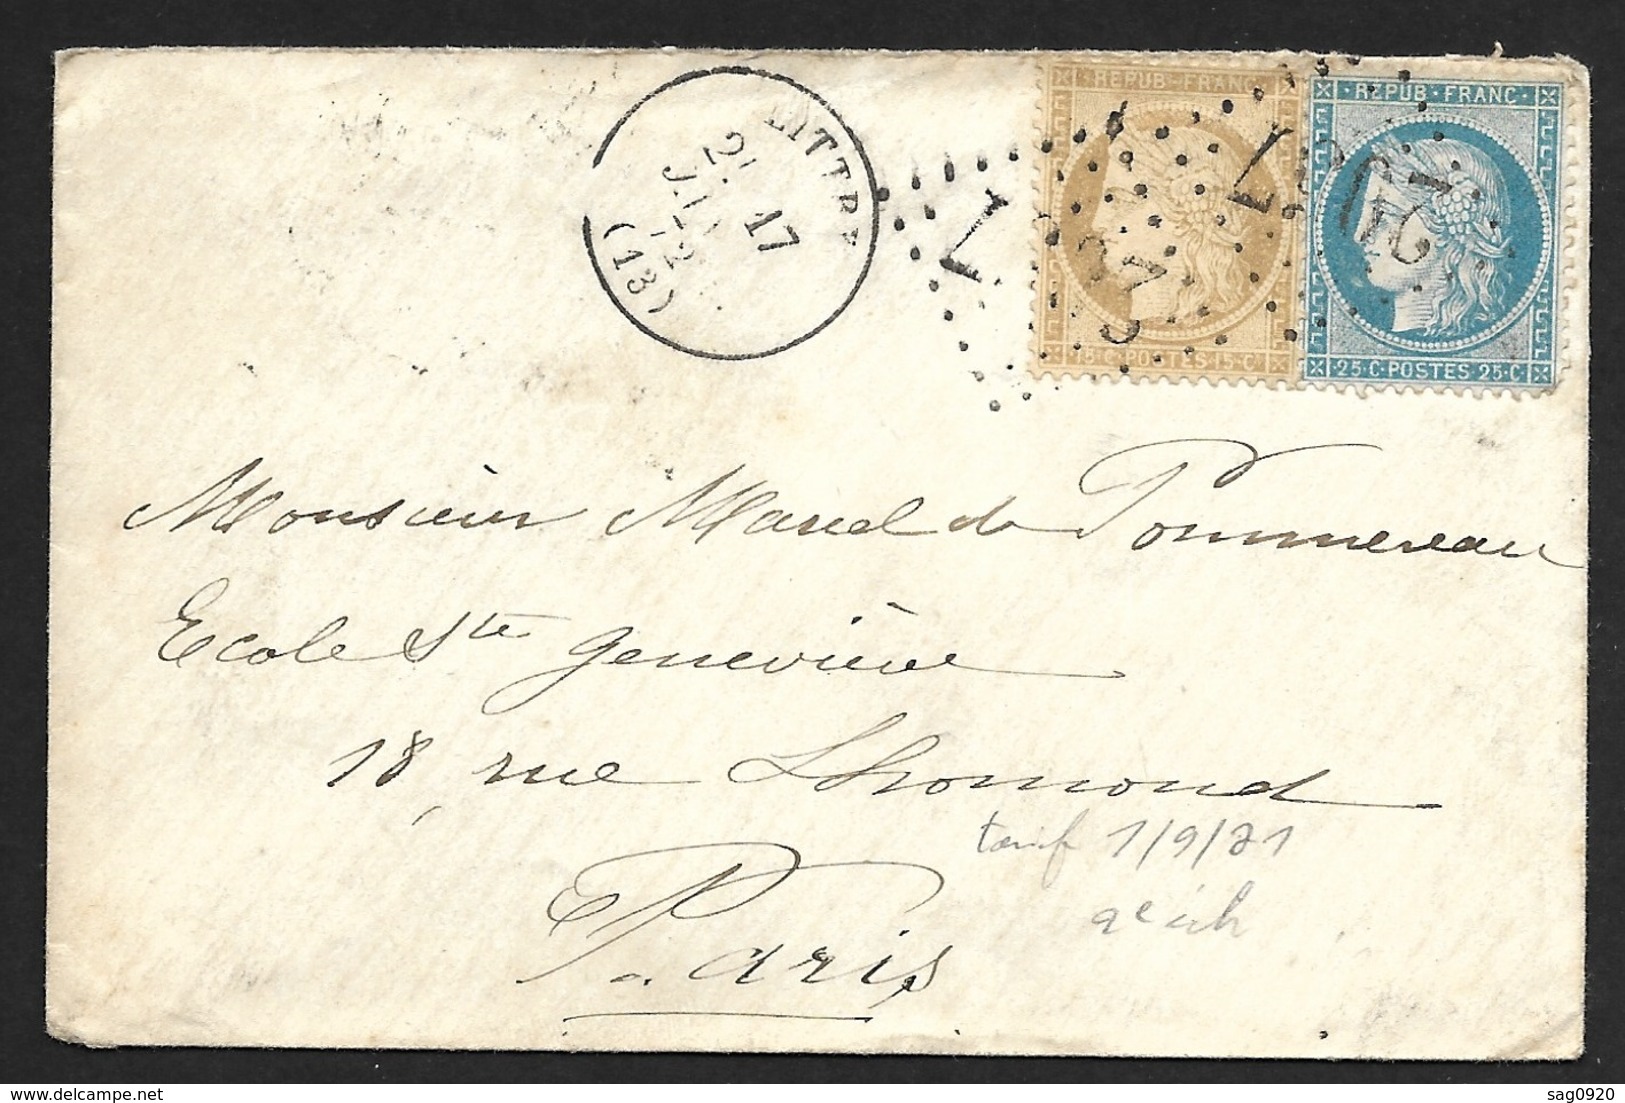 REPUB·FRANC·
15·C·POSTES·15·C
·REPUB·FRANC·
·25·C·POSTES 25·C·
2e
17
JUIL
72
(13)
Monsieur Marcel de Pommereau
Ecole Ste Geneviève
18, rue Lhomond
Paris
tarif 1/9/71
sag0920